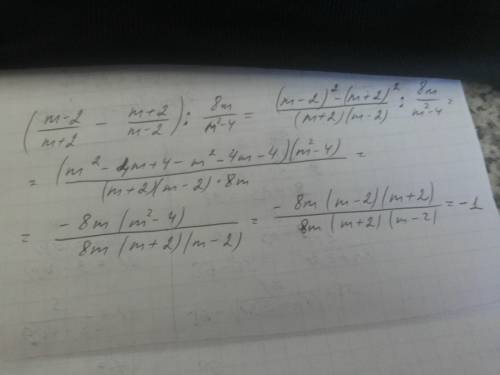 (m-2/m+2 - m+2/m-2) : 8m/m²-4 = (m-2)²-(m+2)²/(m+2)(m-2) : 8m/m²-4 =
= (m²-4m+4-m²-4m-4)(m²-4)/(m+2)(m-2)·8m =
= -8m(m²-4)/8m(m+2)(m-2) = -8m(m-2)(m+2)/8m(m+2)(m-2) = -1